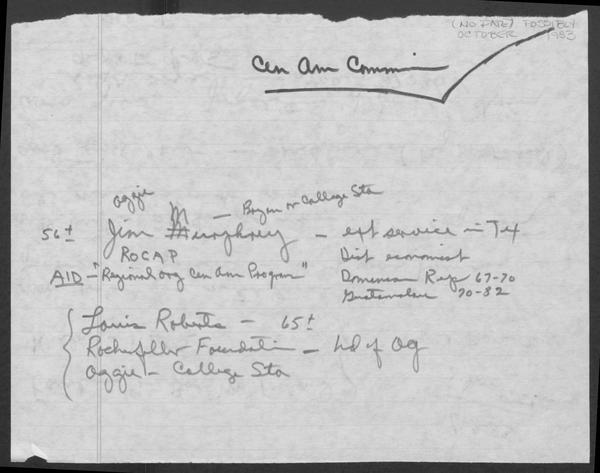 (NO DATE) POSSIBLY
OCTOBER 1983
Cen Am Commin
Aggie
M
— Bryan or College Sta
56± Jim Murphrey — ext service in Tex
ROCAP
Dist economist
AID - "Regional org Cen Am Program"
Domenican Rep 67-70
Guatamalan 70-82
Louis Roberts — 65±
Rockefeller Foundation — hd of Ag
Aggie — College Sta